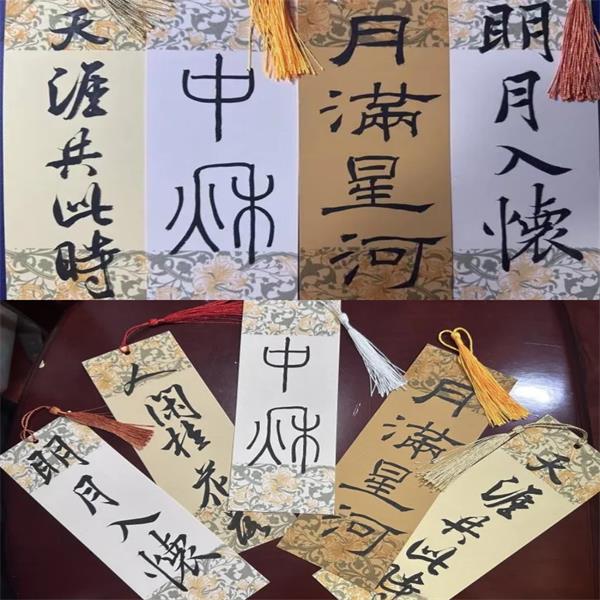 天涯共此時
中秋
月滿星河
明月入懷
明月入懷
人闲桂花落
中秋
月滿星河
天涯共此時